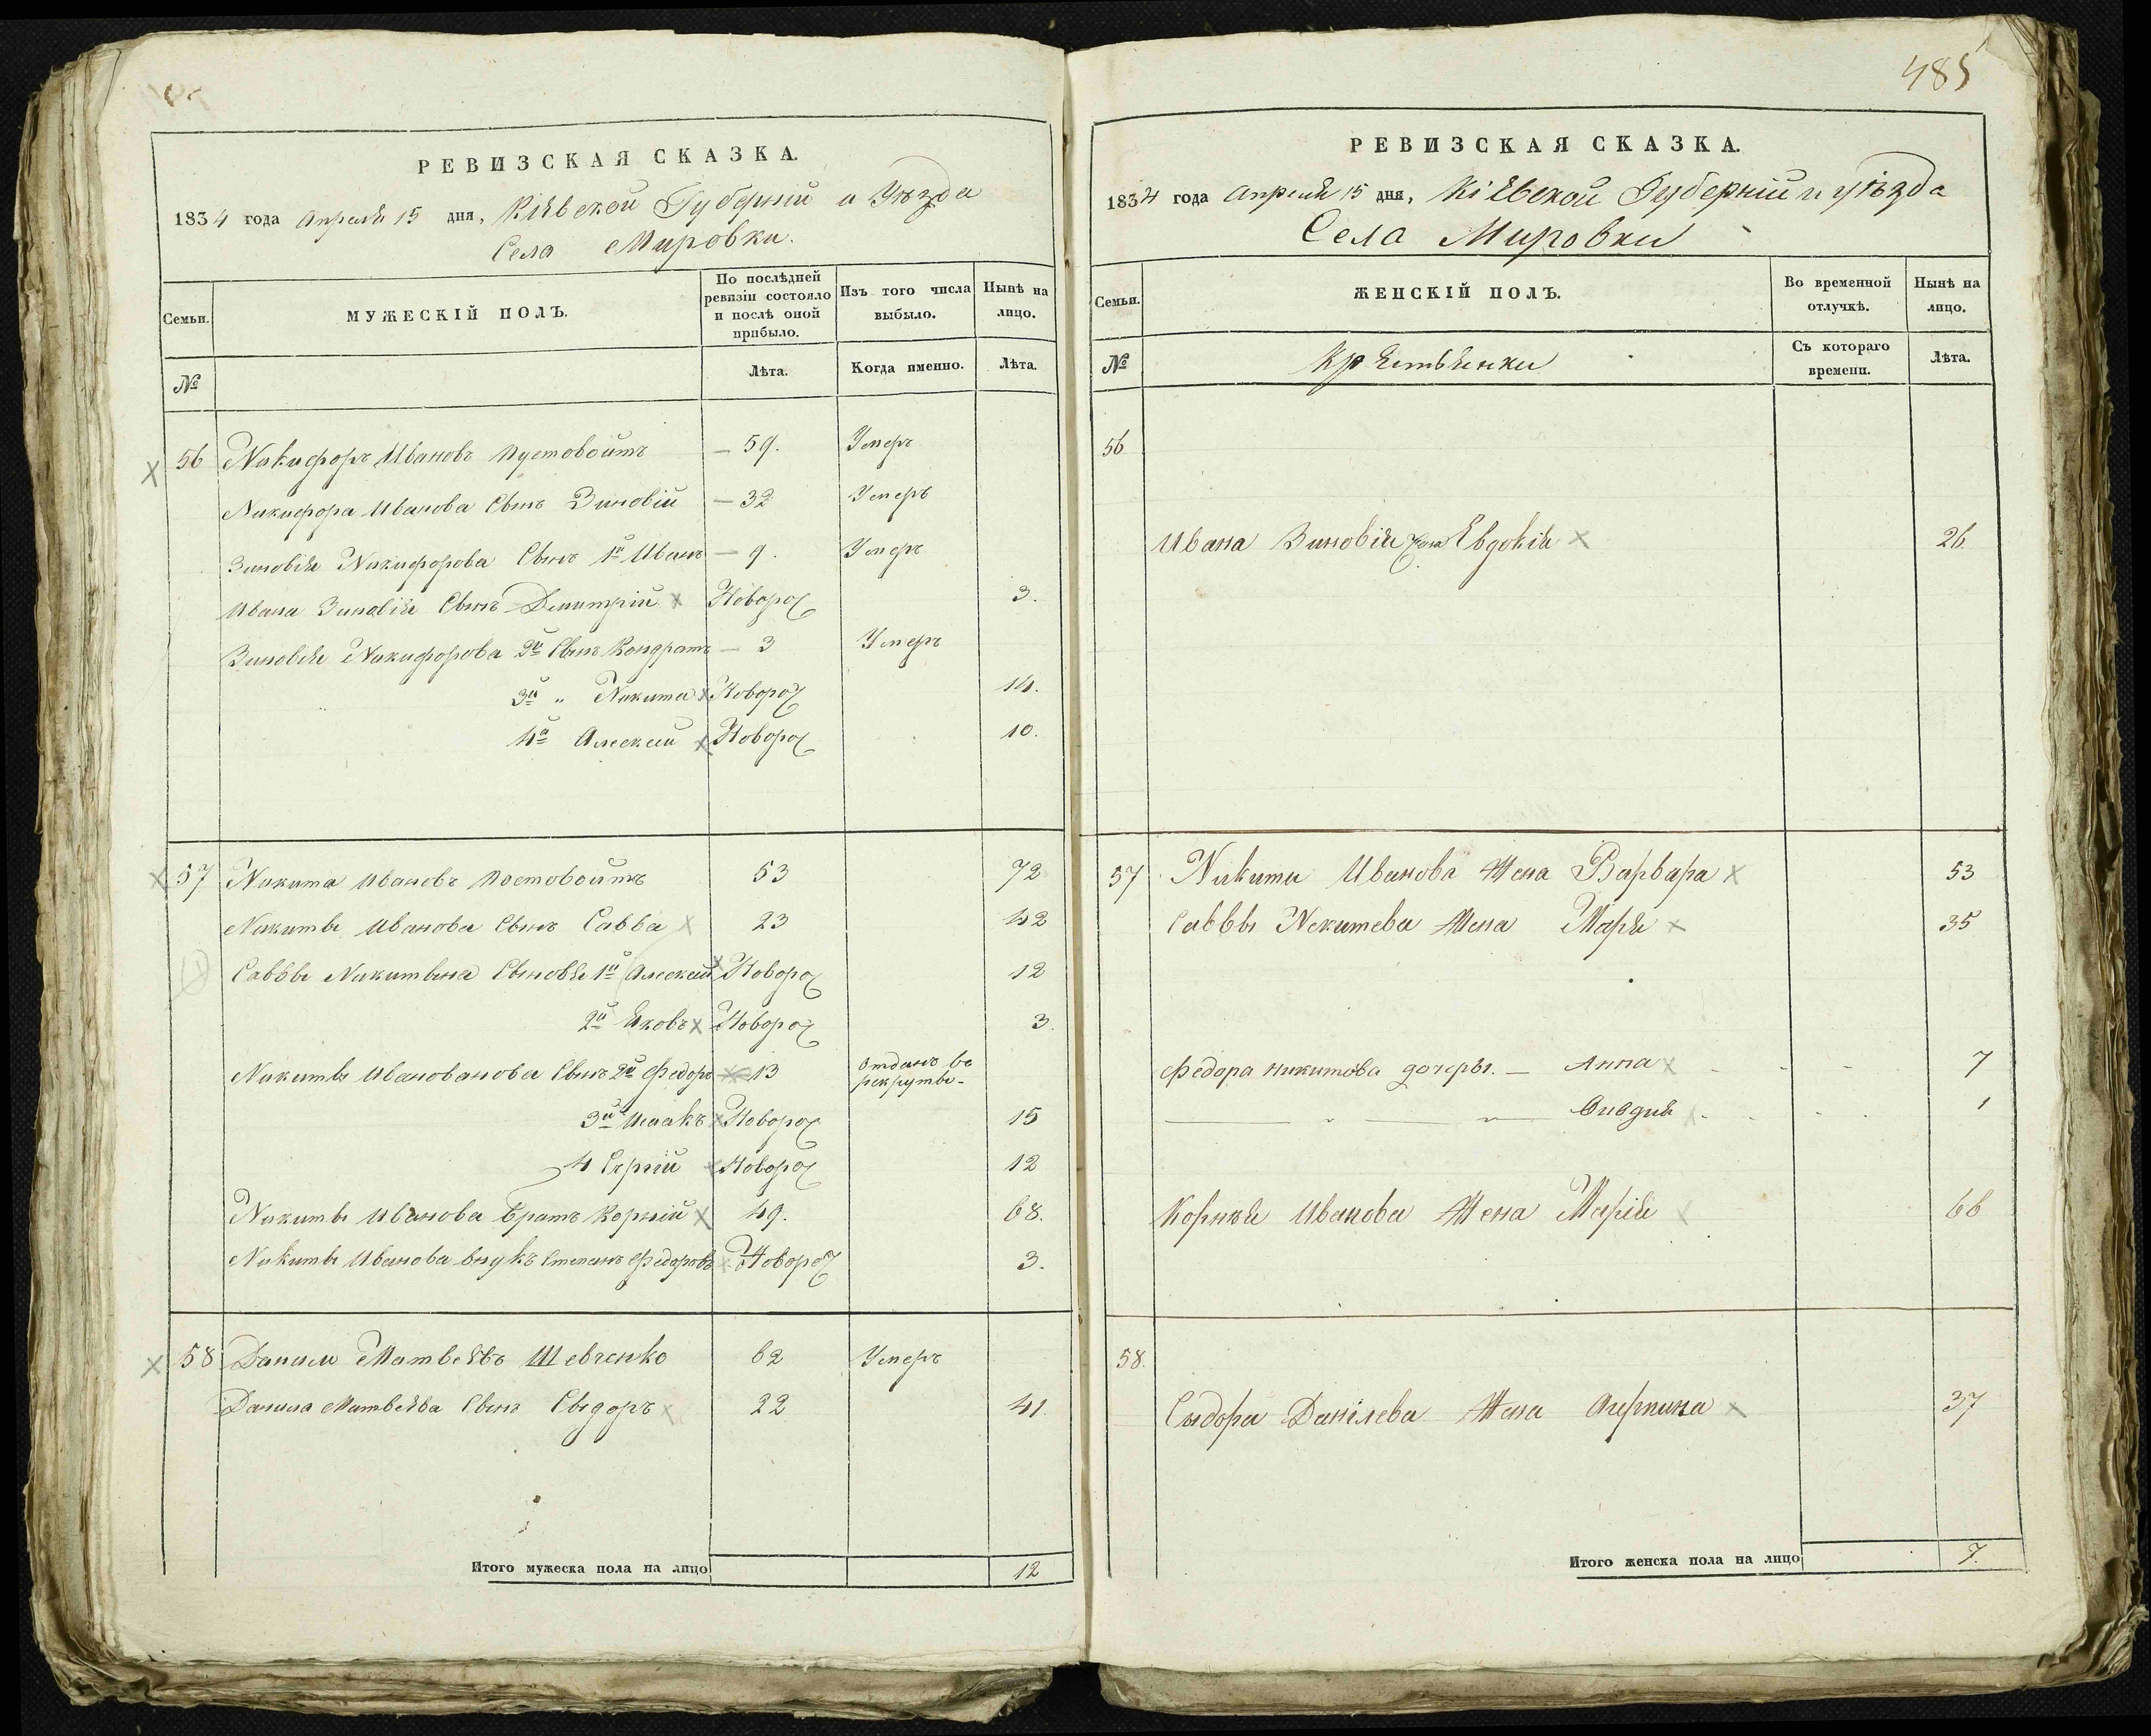 РЕВИЗСКАЯ СКАЗКА.
1834 года Апреля 15 дня, Кіевской Губерніи и Уѣзда
Села Мировки.
Семьи.
МУЖЕСКІЙ ПОЛЪ.
По послѣдней ревизіи состояло и послѣ оной прибыло.
Изъ того числа выбыло.
Нынѣ на лицо.
№
Лѣта.
Когда именно.
Лѣта.
56 Никифоръ Ивановъ Пустовойтъ — 59. Умеръ
Никифора Иванова Сынъ Зиновій — 32 Умеръ
Зиновія Никифорова Сынъ 1й Иванъ — 9. Умеръ
Ивана Зиновія Сынъ Димитрій Новорож 3.
Зиновія Никифорова 2й Сынъ Кондратъ — 3 Умеръ
3й „ Никита Новорож 14.
4й Алексей Новорож 10.
57 Никита Ивановъ Постовойтъ 53 72
Никиты Иванова Сынъ Савва 23 42
Саввы Никитина Сыновья 1й Алексей Новорож 12
2й Яковъ Новорож 3.
Никиты Ивановановa Сынъ 2й Федоръ 13 Отданъ въ рекруты -
3й Исаакъ Новорож 15
4 Сергій Новорож 12
Никиты Иванова братъ Корній 49. 68.
Никиты Иванова внукъ Степанъ Федоровъ Новорож 3.
58 Данило Матвеевъ Шевченко 62 Умеръ
Данила Матвеева Сынъ Сыдоръ 22 41
Итого мужеска пола на лицо 12
485
РЕВИЗСКАЯ СКАЗКА.
1834 года Апреля 15 дня, Кіевской Губерніи и уѣзда
Села Мировки
Семьи.
ЖЕНСКІЙ ПОЛЪ.
Во временной отлучкѣ.
Нынѣ на лицо.
№
Крестьянки
Съ котораго времени.
Лѣта.
56
Ивана Зиновія жена Евдокія 26
57 Никиты Иванова Жена Варвара 53
Саввы Никитева Жена Марья 35
Федора никитова дочеры. — Анна 7
1
Корнѣя Иванова Жена Марія 66
58.
Сыдора Данілева Жена 37
Итого женска пола на лицо 7.